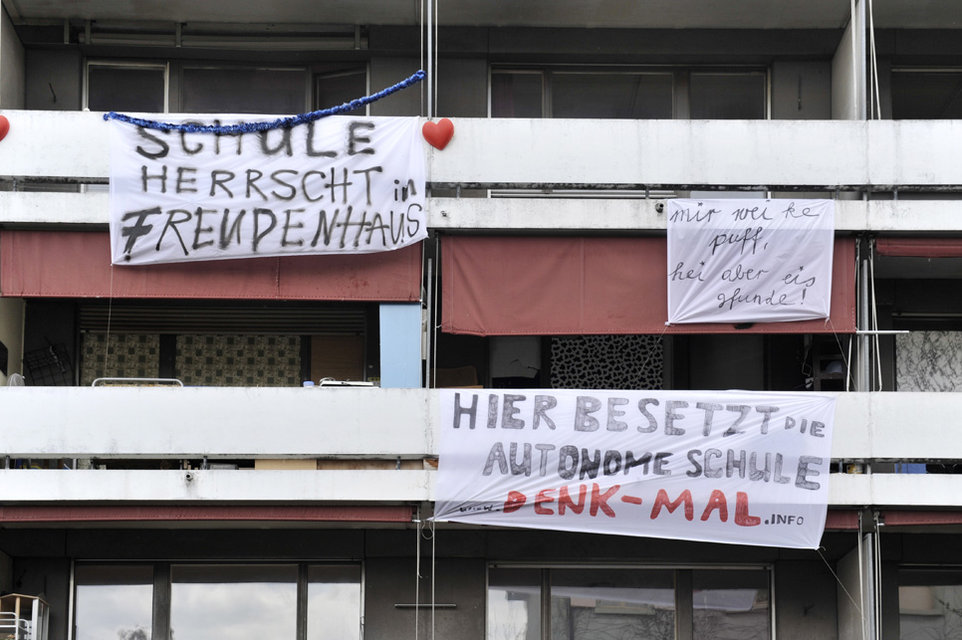 SCHULE
HERRSCHT in
FREUDENHAUS
mir wei ke
puff,
hei aber eis
gfunde!
HIER BESETZT DIE
AUTONOME SCHULE
www.DENK-MAL.INFO